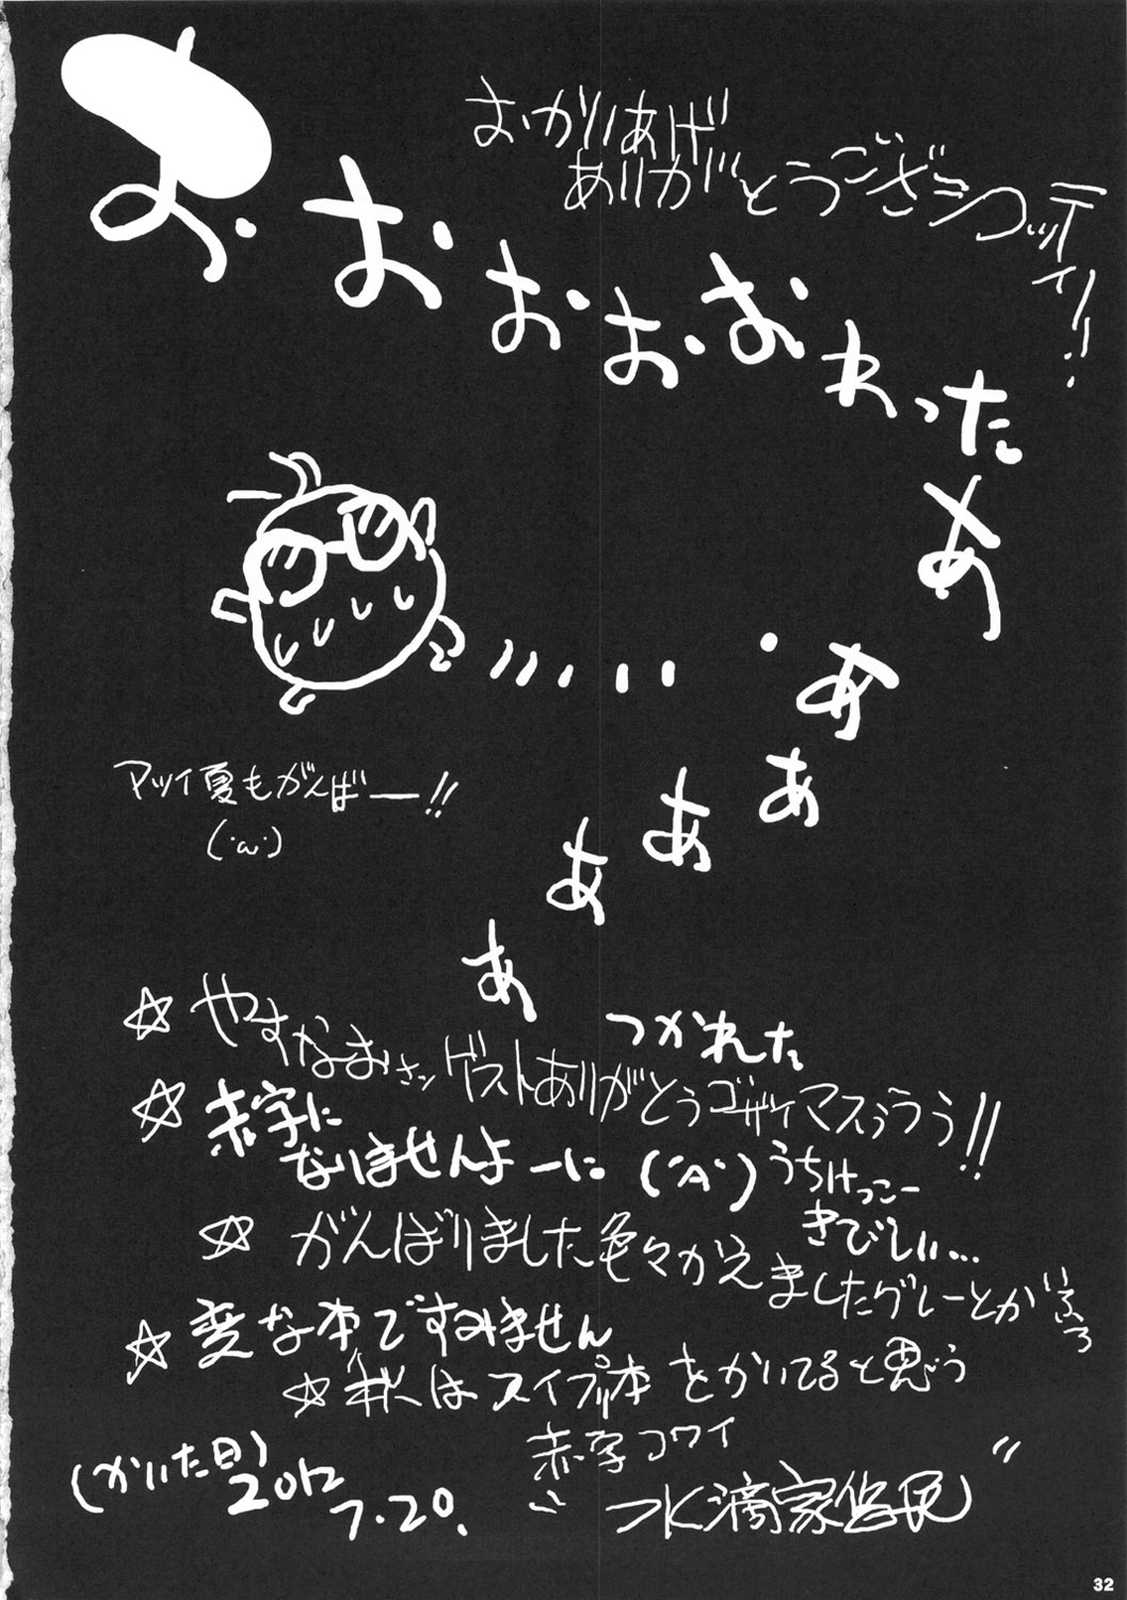 おかいあげ
ありがとうございマッ
お・おおお・おわったああああああ
アツイ夏もがんばー!!
(・ω・)
つかれた
☆やすなおさんゲストありがとうゴザイマスぅぅぅ!!
☆赤字に
なりませんよーに(´A`)
うちけっこー
きびしい…
☆がんばりました色々かえましたグレーとか
☆変な本ですみません
☆次はスイプリ本をかいてると思う
赤字コワイ
(かいた日)
2012
7.20.
水滴家
32